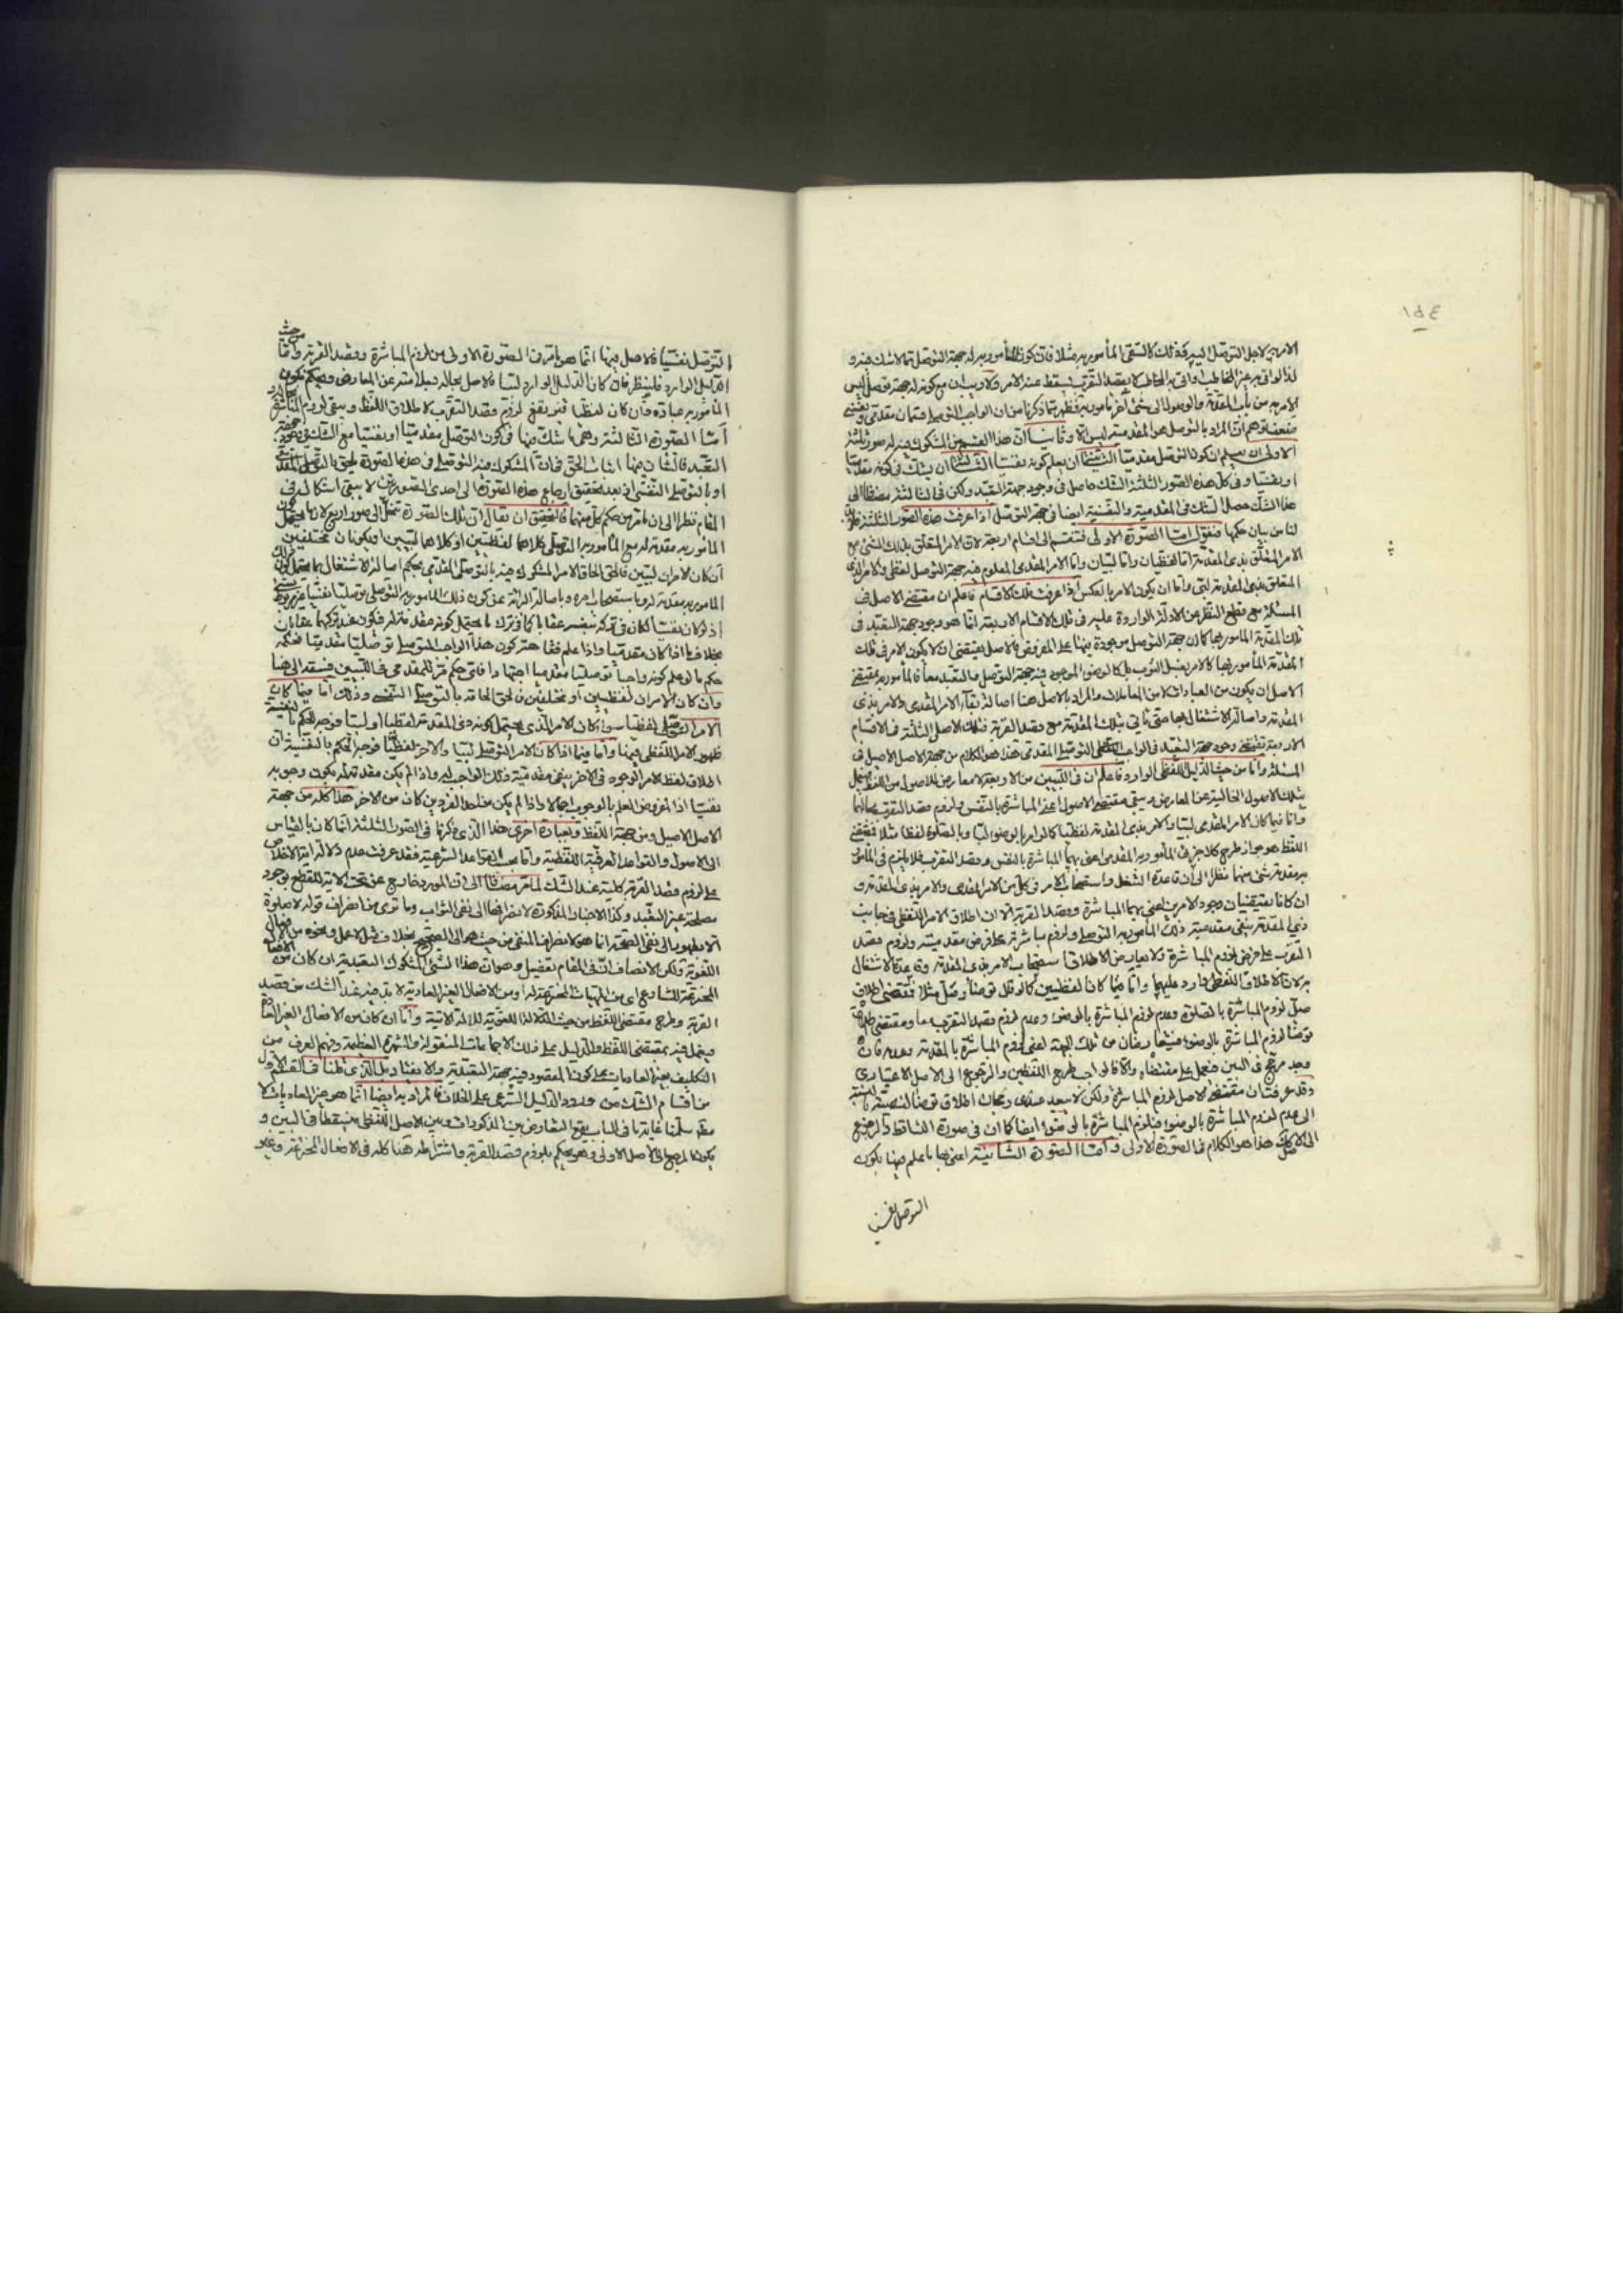 ١٥٤
الامر به لاجل التوصل اليه وذلك كالسقى المأمور به مثلا فان كون المأمور به له جهة التوصل مما لا شك فيه و
لذا لو اتى به غير المخاطب او اتى به المخاطب لا بقصد التقرب يسقط عنه الامر ولا ريب ان مع كونه له جهة توصل ليس
الامر به من باب المقدمة والوصول الى شئ آخر مأمور به فظهر مما ذكرنا ان الواجب التوصلى قسمان مقدمى ونفسى
ان المراد بالتوصلى هو المقدمى ليس الا وثانيا ان هذا القسم من المشكوك فيه له صور ثلثة
الاولى ان يعلم ان كون التوصل مقدميا الثانية ان يعلم كونه نفسيا الثالثة ان يشك فى كونه مقدميا
او نفسيا وفى كل هذه الصور الثلثة الشك حاصل فى وجود جهة التعبد ولكن فى الثالثة مضافا الى
هذا الشك حصل الشك فى المقدمية والنفسية ايضا فى جهة التوصل اذا عرفت هذه الصور الثلثة فلا بد
لنا من بيان حكمها فنقول اما الصورة الاولى فتنقسم الى اقسام اربعة لان الامر المتعلق بذلك الشئ مع
الامر المتعلق بذى المقدمة اما لفظيان واما لبيان واما الامر المقدمى المعلوم فيه جهة التوصل لفظى والامر
المتعلق بذى المقدمة لبى واما ان يكون الامر بالعكس اذا عرفت تلك الاقسام فاعلم ان مقتضى الاصل فى
المسئلة مع قطع النظر عن الادلة الواردة عليه فى تلك الاقسام الاربعة انما هو وجود جهة التعبد فى
تلك المقدمة المأمور بها كما ان جهة التوصل موجودة فيها على المفروض فالاصل يقتضى ان لا يكون الامر فى تلك
المقدمة المأمور بها كالامر بغسل الثوب بل كالوضوء الموجود فيه جهة التوصل والتعبد معا فالمأمور به بمقتضى
الاصل ان يكون من العبادات لا من المعاملات والمراد بالاصل هنا اصالة بقاء الامر المقدمى والامر بذى
المقدمة واصالة الاشتغال بهما حتى تأتى بتلك المقدمة مع قصد القربة فتلك الاصل الثلثة فى الاقسام
الاربعة تقتضى وجود جهة التعبد فى الواجب التوصلى المقدمى هذا هو الكلام من جهة الاصل الاصيل فى
المسئلة واما من حيث الدليل اللفظى الوارد فاعلم ان فى اللبيين من الاربعة لا معارض للاصول من اللفظ فيعمل
بتلك الاصول الخالية عن المعارض ويبقى مقتضى الاصول اعنى المباشرة بالنفس ولزوم قصد التقرب بحالهما
واما فيما كان الامر المقدمى لبيا والامر بذى المقدمة لفظيا كما لو امر بالوضوء لبا وبالصلوة لفظا مثلا فمقتضى
اللفظ هو جواز طرح كلا جزئى المأمور به المقدمى اعنى بهما المباشرة بالنفس وقصد التقرب فلا يلزم فى المأمور
به مقدمة شئ منهما نظرا الى ان قاعدة الشغل واستصحاب الامر فى كل من الامر المقدمى والامر بذى المقدمة و
ان كانا يقتضيان وجود الامرين اعنى بهما المباشرة وقصد القربة الا ان اطلاق الامر اللفظى فى جانب
ذى المقدمة ينفى مقدمية ذلك المأمور به التوصلى ولزوم مباشرته على فرض مقدميته ولزوم قصد
التقرب على فرض لزوم المباشرة ولا يعارض الاطلاق استصحاب الامر بذى المقدمة وقاعدة الاشتغال
به لان الاطلاق اللفظى وارد عليهما واما فيما كان لفظيين كما لو قال توضأ وصل مثلا فمقتضى اطلاق
صل لزوم المباشرة بالصلوة وعدم لزوم المباشرة بالوضوء وعدم لزوم قصد التقرب معا ومقتضى اطلاق
توضأ لزوم المباشرة بالوضوء فيتعارضان من تلك الجهة اعنى لزوم المباشرة بالمقدمة وعدمه فان
وجد مرجح فى البين فنعمل على مقتضاه والا فالواجب طرح اللفظين والرجوع الى الاصل الاعتبارى
وقد عرفت ان مقتضى الاصل لزوم المباشرة ولكن لا يبعد عندى رجحان اطلاق توضأ لنصيته بالنسبة
الى عدم لزوم المباشرة بالوضوء فيلزم المباشرة بالوضوء ايضا كما ان فى صورة التساقط والرجوع
الى الاصل كك هذا هو الكلام فى الصورة الاولى واما الصورة الثانية اعنى بها ما علم فيها بكون
التوصل نفسيا
التوصل نفسيا فالاصل فيها انما هو ما مر فى الصورة الاولى من لزوم المباشرة وقصد القربة واما من حيث
الدليل الوارد فلينظر فان كان الدليل الوارد لبيا فالاصل بحاله لسلامته عن المعارض ويحكم بكون
المأمور به عبادة وان كان لفظيا فهو ينفى لزوم قصد التقرب لاطلاق اللفظ ويبقى لزوم المباشرة
اما الصورة الثالثة وهى ما شك فيها فى كون التوصل مقدميا او نفسيا مع الشك فى وجود جهة
التعبد فالشان فيها اثبات الحق فى ان المشكوك فيه التوصلى فى هذه الصورة يلحق بالتوصلى المقدمى
او بالتوصلى النفسى اذ بعد تحقيق ارجاع هذه الصورة الى احدى الصورتين لا يبقى اشكال فى
المقام نظرا الى ان ما مر من حكم كل منهما فالتحقيق ان يقال ان تلك الصورة تنحل الى صور اربع لان ما يحتمل كون
المأمور به مقدمة له مع المأمور به التوصلى كلاهما لفظيين او كلاهما لبيين او يكونان مختلفين
ان كان الامران لبيين فالحق الحاق الامر المشكوك فيه بالتوصلى المقدمى بحكم اصالة الاشتغال بما يحتمل كون
المأمور به مقدمة له وباستصحاب امره وباصالة البرائة عن كون ذلك المأمور به التوصلى توصليا نفسيا
اذ لو كان نفسيا لكان فى تركه بنفسه عقابا كما فى ترك ما يحتمل كونه مقدمة له فيكون عند تركهما عقابان
بخلاف ما اذا كان مقدميا واذا علم فقاهة كون هذا الواجب التوصلى توصليا مقدميا فحكمه
حكم ما لو علم كونه واجبا توصليا مقدميا اجتهادا فاتى حكم مر للمقدمى فى اللبيين فيستعد الى هنا
وان كان الامران لفظيين او مختلفين فالحق الحاقه بالتوصلى النفسى وذلك اما فيما كان
الامر التوصلى لفظيا سواء كان الامر الذى يحتمل كونه ذى المقدمة لفظيا او لبيا فوجه الحكم بالنفسية
ظهور الامر اللفظى فيها واما فيما اذا كان الامر التوصلى لبيا والاخر لفظيا فوجه الحكم بالنفسية ان
اطلاق لفظ الامر الموجود فى الاخر ينفى مقدمية ذلك الواجب له واذا لم يكن مقدمة له يكون وجوبه
نفسيا اذ المفروض العلم بالوجوب اجمالا واذا لم يكن من احد الفردين كان من الاخر هذا كله من جهة
الاصل الاصيل ومن جهة اللفظ وبعبارة اخرى هذا الذى ذكرنا فى الصور الثلثة انما كان بالقياس
الى الاصول والقواعد العرفية اللفظية واما بحسب القواعد الشرعية فقد عرفت عدم دلالة اية الاخلاص
على لزوم قصد القربة كلية عند الشك لما مر مضافا الى ان المورد خارج عن تحت الاية للقطع بوجود
مصلحة غير التعبد وكذا الاخبار المذكورة لانصرافها الى نفى الثواب وما ترى من انصراف قوله لا صلوة
الا بطهور الى نفى الصحة انما هو لانصراف المنفى من حيث هو الى الصحيح بخلاف مثل لا عمل ونحوه من الافعال
اللغوية ولكن الانصاف ان فى المقام تفصيل وهو ان هذا الشئ المشكوك التعبدية ان كان من الافعال
المخترعة للشارع اى من الهيئات المخترعة له او من الافعال الغير العادية لا بد فيه عند الشك من قصد
القربة وطرح مقتضى اللفظ من حيث الدلالة اللغوية للادلة الاتية واما ان كان من الافعال الغير
فيعمل فيه بمقتضى اللفظ والدليل على ذلك الاجماعات المنقولة والشهرة العظيمة وفهم العرف من
التكليف بغير العاديات على كون المقصود فيه جهة التعبدية والامتثال بل الذى قلنا فى القسم الاول
من اقسام الشك من ورود الدليل الشرعى على الخلاف فالمراد به ايضا انما هو غير العاديات لا
مطلقا سلمنا غاية ما فى الباب يقع التعارض بين المذكورات وبين الاصل اللفظى فيتساقطان فى البين و
يكون المرجع الى الاصل الاولى وهو يحكم بلزوم قصد القربة واشتراطه هنا كله فى الافعال المخترعة وغير